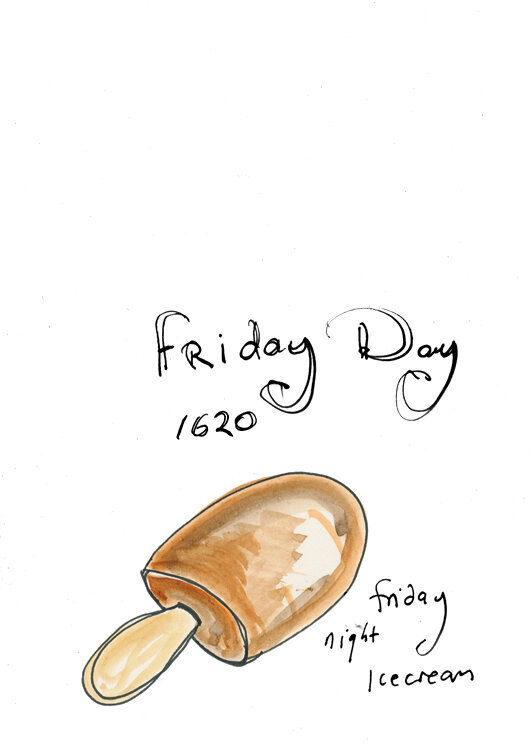 Friday Day
1620
friday
night
Icecream